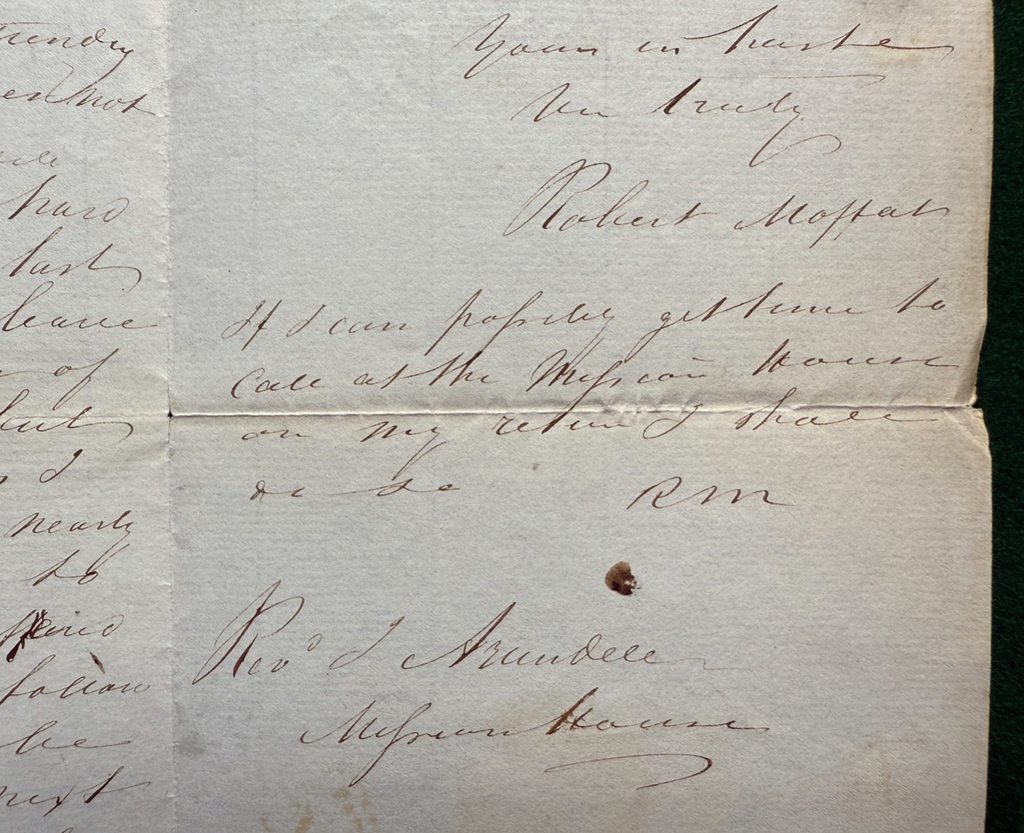 hard
last
leave
of
but
I
nearly
to
follow
be
next
Yours in haste
Very truly
Robert Moffat
If I can possibly get time to
call at the Mission House
on my return I shall
do so RM
Revd J Arundell
Mission House